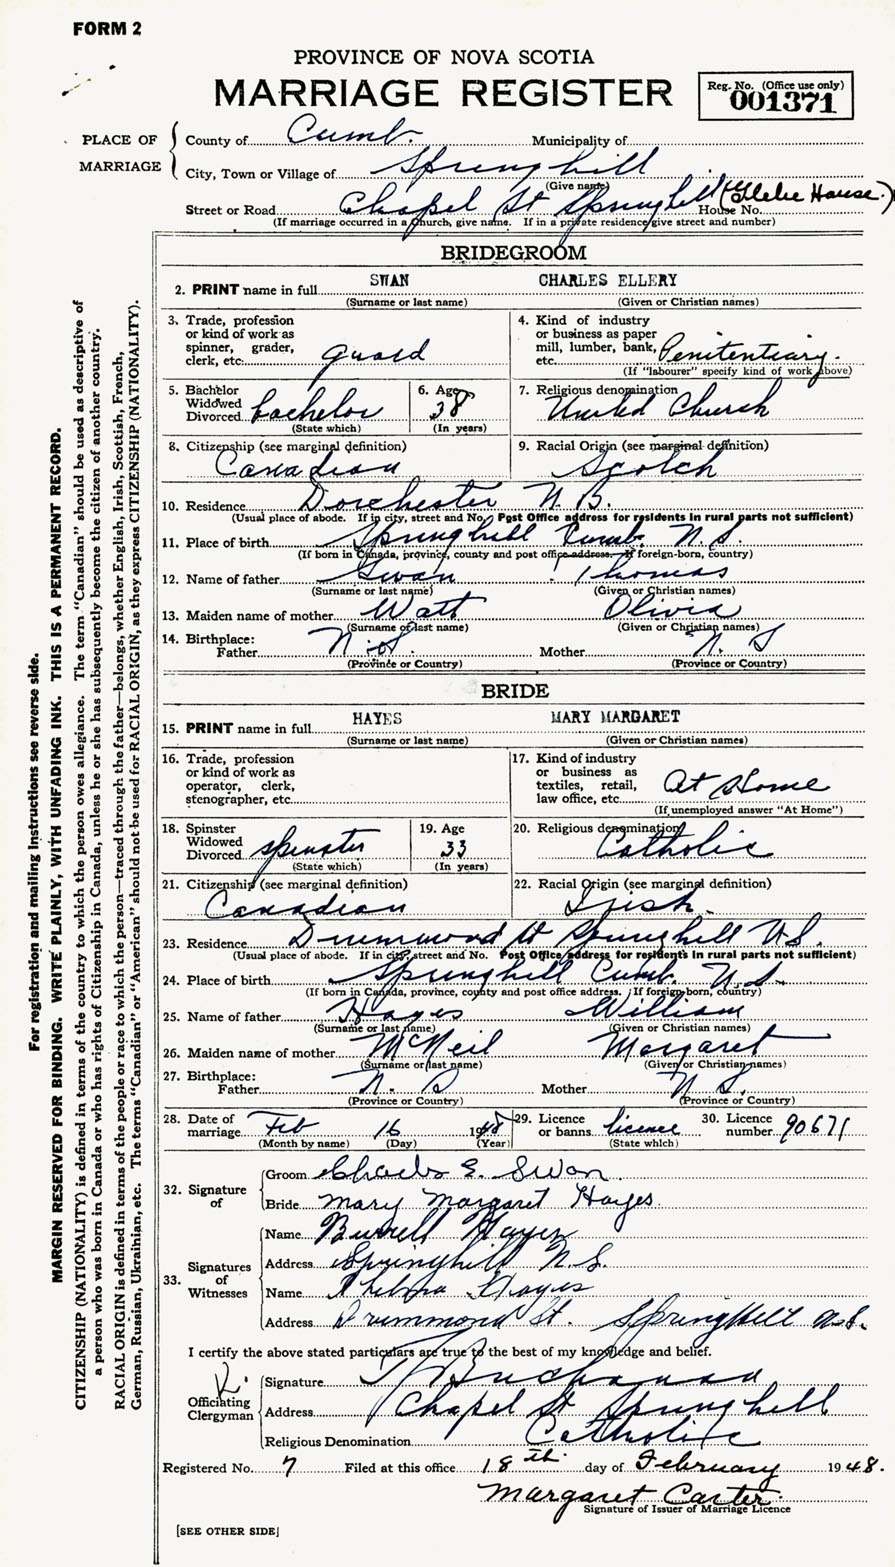 FORM 2
PROVINCE OF NOVA SCOTIA
MARRIAGE REGISTER
Reg. No. (Office use only)
001371
PLACE OF MARRIAGE
County of Cumb. Municipality of
City, Town or Village of Springhill
(Give name)
Street or Road Chapel St Springhill House No. (Glebe House.)
(If marriage occurred in a Church, give name. If in a private residence give street and number)
BRIDEGROOM
2. PRINT name in full SWAN CHARLES ELLERY
(Surname or last name) (Given or Christian names)
3. Trade, profession or kind of work as spinner, grader, clerk, etc. guard
4. Kind of industry or business as paper mill, lumber, bank, etc. Penitentiary.
(If "labourer" specify kind of work above)
5. Bachelor Widowed Divorced bachelor
(State which)
6. Age 38
(In years)
7. Religious denomination United Church
8. Citizenship (see marginal definition) Canadian
9. Racial Origin (see marginal definition) Scotch
10. Residence Dorchester N.B.
(Usual place of abode. If in city, street and No. Post Office address for residents in rural parts not sufficient)
11. Place of birth Springhill Cumb. N.S.
(If born in Canada, province, county and post office address. If foreign-born, country)
12. Name of father Swan Thomas
(Surname or last name) (Given or Christian names)
13. Maiden name of mother Watt Olivia
(Surname or last name) (Given or Christian names)
14. Birthplace:
Father N.S. Mother N. S
(Province or Country) (Province or Country)
BRIDE
15. PRINT name in full HAYES MARY MARGARET
(Surname or last name) (Given or Christian names)
16. Trade, profession or kind of work as operator, clerk, stenographer, etc.
17. Kind of industry or business as textiles, retail, law office, etc. At Home
(If unemployed answer "At Home")
18. Spinster Widowed Divorced spinster
(State which)
19. Age 33
(In years)
20. Religious denomination Catholic
21. Citizenship (see marginal definition) Canadian
22. Racial Origin (see marginal definition) Irish.
23. Residence Drummond St Springhill N.S.
(Usual place of abode. If in city, street and No. Post Office address for residents in rural parts not sufficient)
24. Place of birth Springhill Cumb. N.S.
(If born in Canada, province, county and post office address. If foreign-born, country)
25. Name of father Hayes William
(Surname or last name) (Given or Christian names)
26. Maiden name of mother McNeil Margaret
(Surname or last name) (Given or Christian names)
27. Birthplace:
Father N. S Mother N S.
(Province or Country) (Province or Country)
28. Date of marriage Feb 16 1948
(Month by name) (Day) (Year)
29. Licence or banns licence
(State which)
30. Licence number 90671
32. Signature of
Groom Charles E. Swan
Bride Mary Margaret Hayes.
33. Signatures of Witnesses
Name Burrell Hayes
Address Springhill N.S.
Name Thelma Hayes
Address Drummond St. Springhill N.S.
I certify the above stated particulars are true to the best of my knowledge and belief.
Officiating Clergyman
Signature Buchanan
Address Chapel St Springhill
Religious Denomination Catholic
Registered No. 7 Filed at this office 18th day of February 1948.
Margaret Carter.
Signature of Issuer of Marriage Licence
[SEE OTHER SIDE]
For registration and mailing instructions see reverse side.
MARGIN RESERVED FOR BINDING. WRITE PLAINLY, WITH UNFADING INK. THIS IS A PERMANENT RECORD.
CITIZENSHIP (NATIONALITY) is defined in terms of the country to which the person owes allegiance. The term "Canadian" should be used as descriptive of
a person who was born in Canada or who has rights of Citizenship in Canada, unless he or she has subsequently become the citizen of another country.
RACIAL ORIGIN is defined in terms of the people or race to which the person—traced through the father—belongs, whether English, Irish, Scottish, French,
German, Russian, Ukrainian, etc. The terms "Canadian" or "American" should not be used for RACIAL ORIGIN, as they express CITIZENSHIP (NATIONALITY).